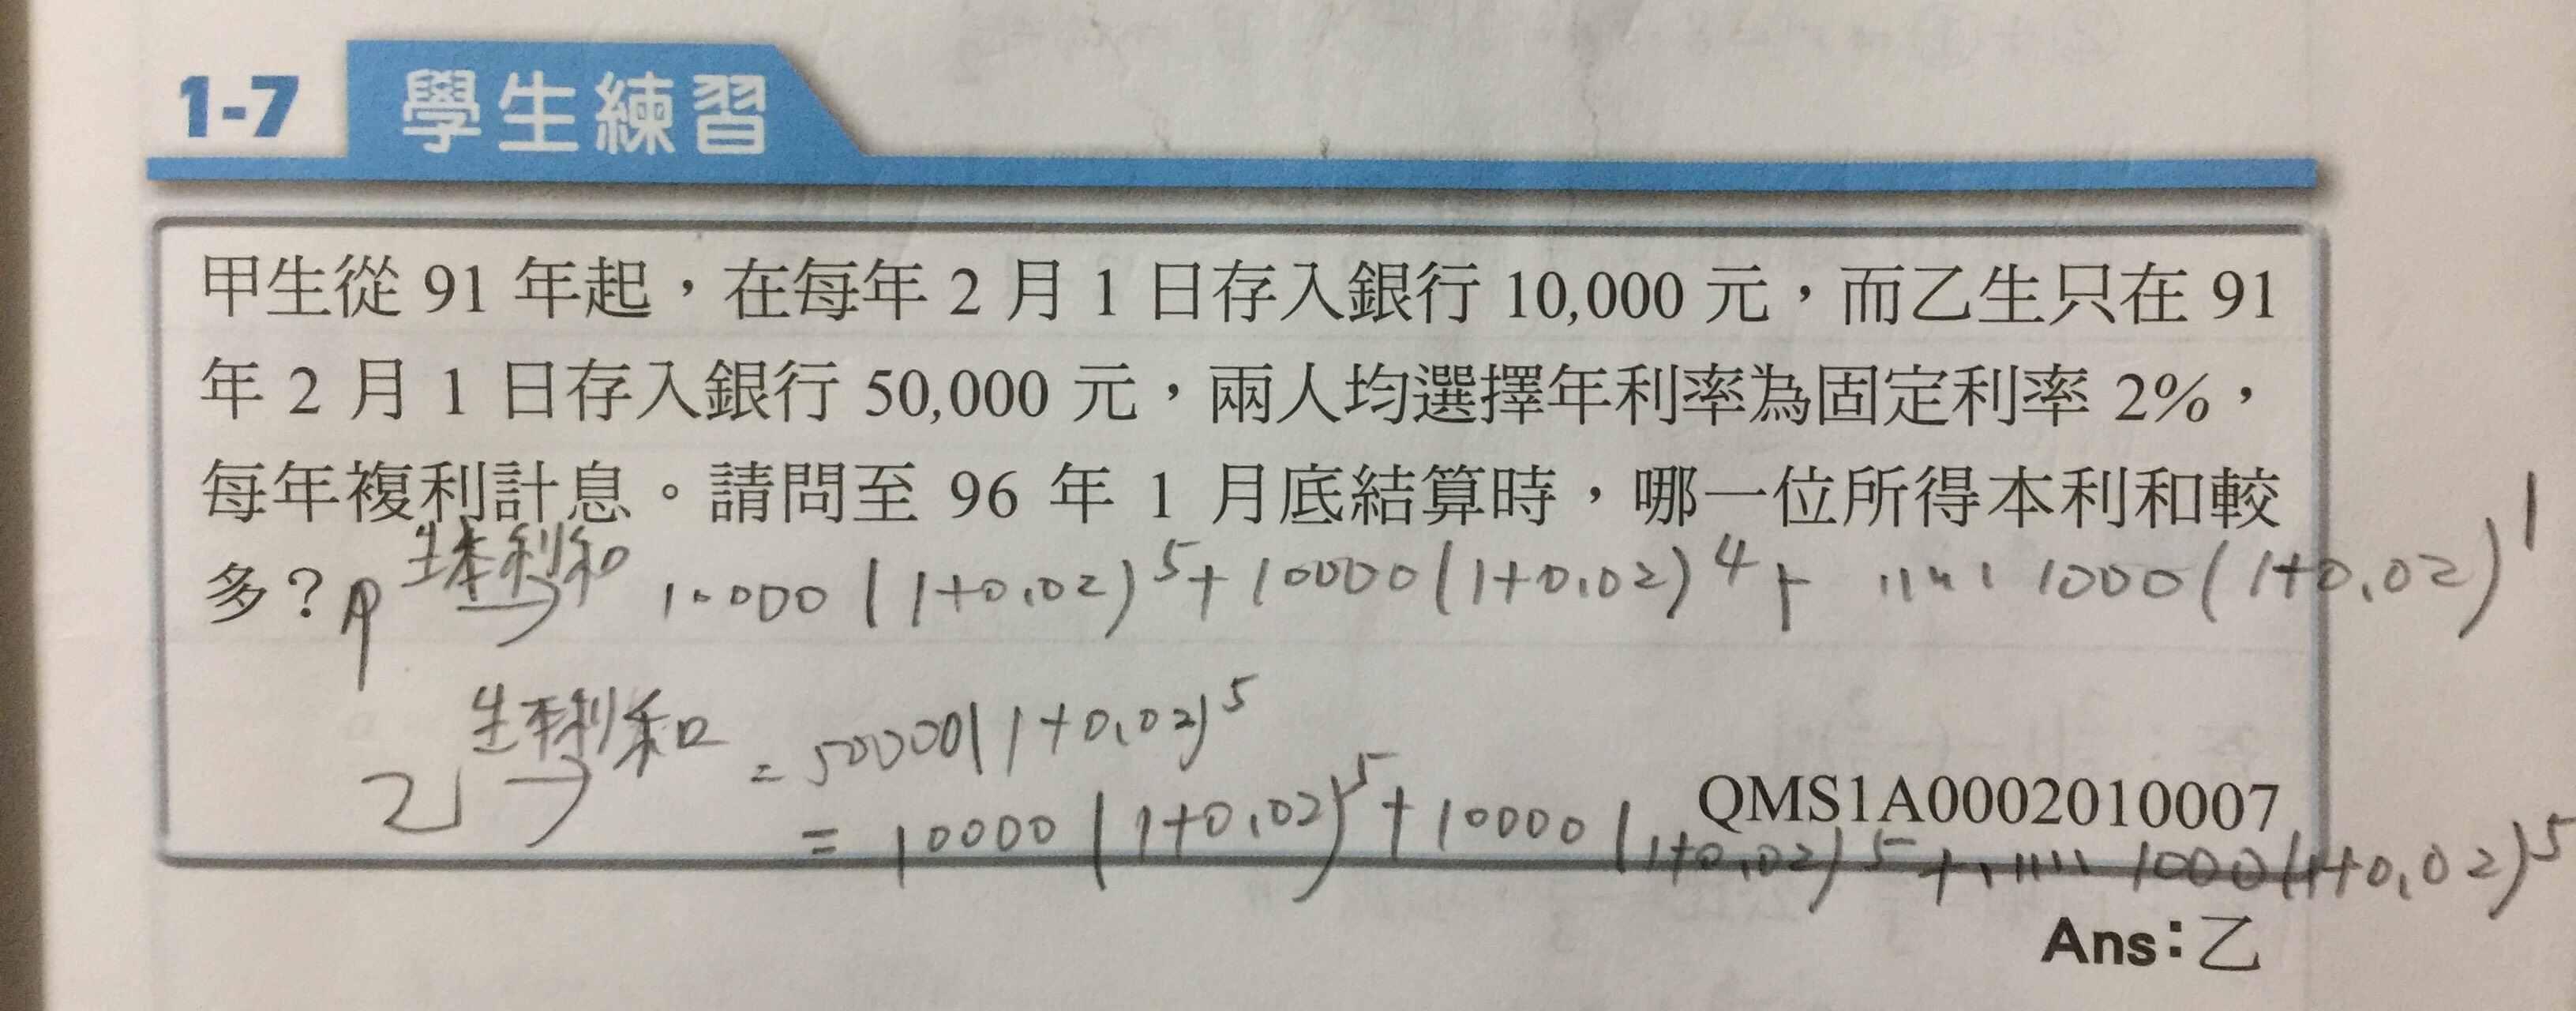 1-7 學生練習
甲生從 91 年起，在每年 2 月 1 日存入銀行 10,000 元，而乙生只在 91
年 2 月 1 日存入銀行 50,000 元，兩人均選擇年利率為固定利率 2%，
每年複利計息。請問至 96 年 1 月底結算時，哪一位所得本利和較
多？
甲 生本利和 → 10000(1+0.02)⁵+10000(1+0.02)⁴+ ..... 1000(1+0.02)¹
乙 生本利和 → = 50000(1+0.02)⁵
= 10000(1+0.02)⁵+10000(1+0.02)⁵+..... 1000(1+0.02)⁵
QMS1A0002010007
Ans：乙